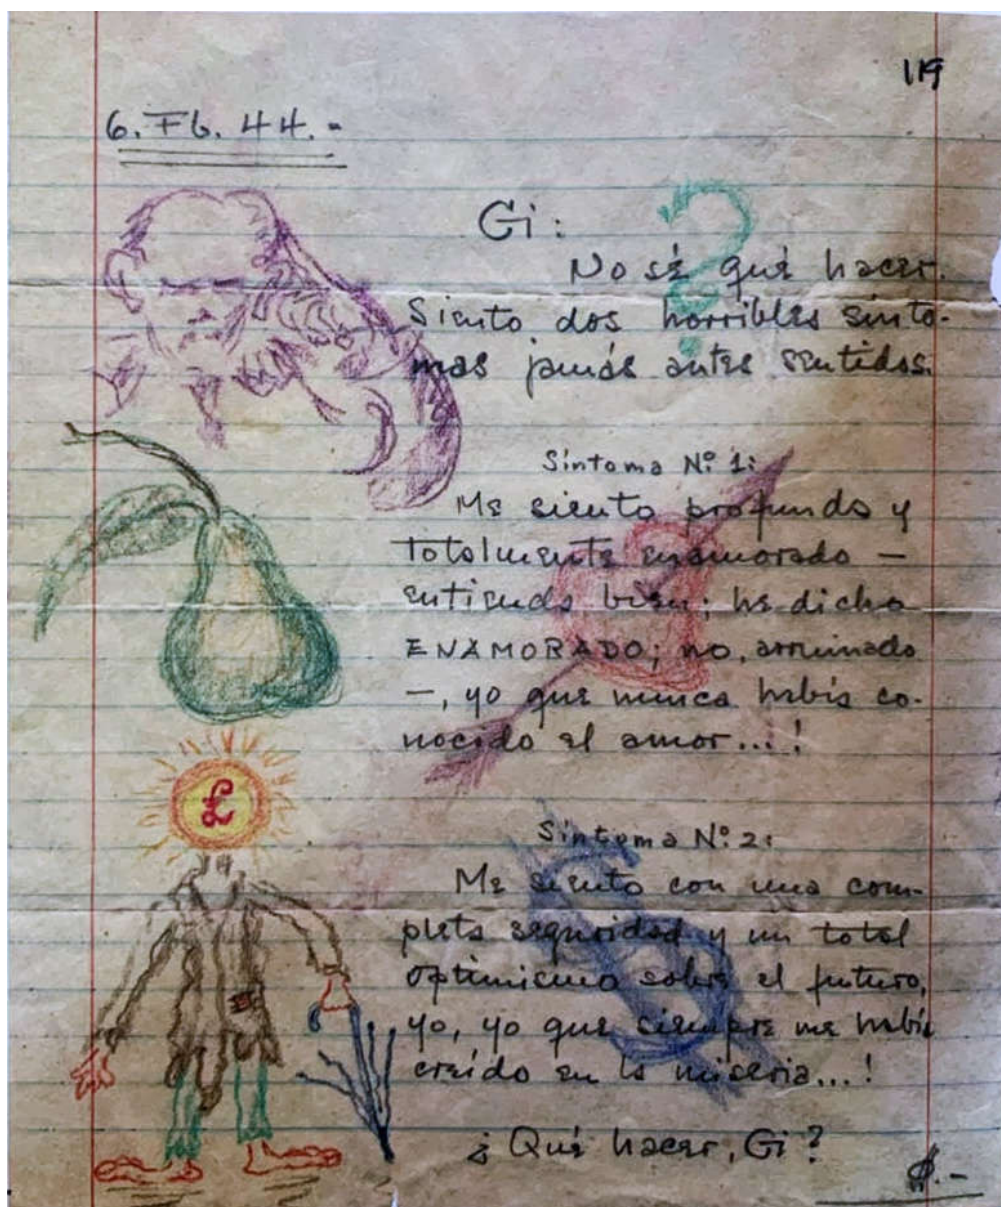 119
6. Fb. 44.-
Gi:
No sé qué hacer.
Siento dos horribles sínto-
mas jamás antes sentidos.
Síntoma Nº 1:
Me siento profunda y
totalmente enamorado —
entienda bien; he dicho
ENAMORADO; no, arruinado
—, yo que nunca había co-
nocido el amor...!
£
Síntoma Nº 2:
Me siento con una com-
pleta seguridad y un total
optimismo sobre el futuro,
yo, yo que siempre me había
creído en la miseria...!
¿Qué hacer, Gi?